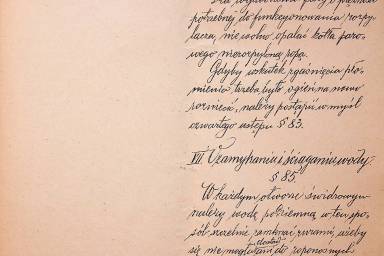 potrzebnej do funkcyonowania rozpy-
lacza, nie wolno opalać kotła paro-
wego nierozpyloną ropą.
Gdyby wskutek zgaśnięcia pło-
mienia trzeba było ogień na nowo
rozniecić, należy postąpić w myśl
czwartego ustępu § 83.
VII. O zamykaniu i ściąganiu wody.
§ 85
W każdym otworze świdrowym
należy wodę podziemną w ten spo-
sób szczelnie zamknąć rurami, ażeby
się nie mogła dostać do roponośnych